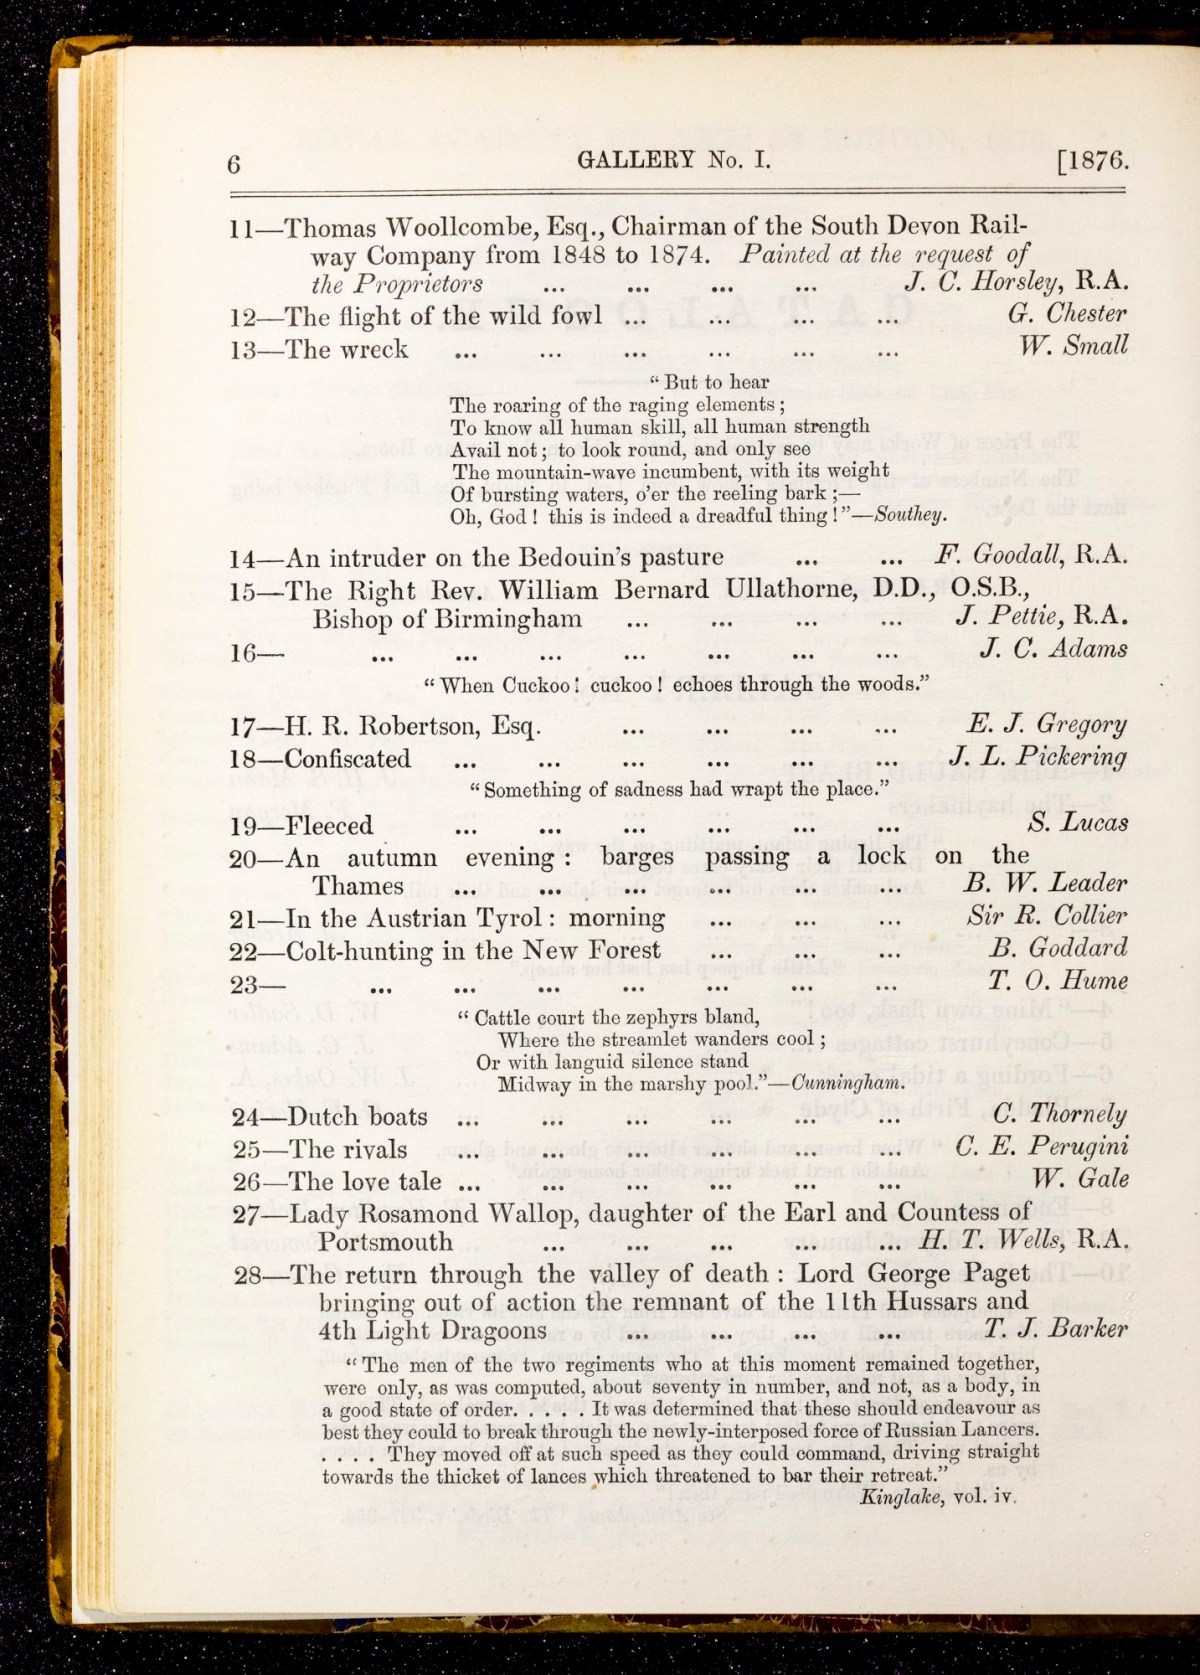 6 GALLERY No. I. [1876.
11—Thomas Woollcombe, Esq., Chairman of the South Devon Rail-
way Company from 1848 to 1874. Painted at the request of
the Proprietors ... ... ... ... J. C. Horsley, R.A.
12—The flight of the wild fowl ... ... ... ... G. Chester
13—The wreck ... ... ... ... ... ... W. Small
“But to hear
The roaring of the raging elements;
To know all human skill, all human strength
Avail not; to look round, and only see
The mountain-wave incumbent, with its weight
Of bursting waters, o’er the reeling bark;—
Oh, God! this is indeed a dreadful thing!”—Southey.
14—An intruder on the Bedouin’s pasture ... ... F. Goodall, R.A.
15—The Right Rev. William Bernard Ullathorne, D.D., O.S.B.,
Bishop of Birmingham ... ... ... ... J. Pettie, R.A.
16— ... ... ... ... ... ... ... J. C. Adams
“When Cuckoo! cuckoo! echoes through the woods.”
17—H. R. Robertson, Esq. ... ... ... ... E. J. Gregory
18—Confiscated ... ... ... ... ... ... J. L. Pickering
“Something of sadness had wrapt the place.”
19—Fleeced ... ... ... ... ... ... S. Lucas
20—An autumn evening: barges passing a lock on the
Thames ... ... ... ... ... ... B. W. Leader
21—In the Austrian Tyrol: morning ... ... ... Sir R. Collier
22—Colt-hunting in the New Forest ... ... ... B. Goddard
23— ... ... ... ... ... ... ... T. O. Hume
“Cattle court the zephyrs bland,
Where the streamlet wanders cool;
Or with languid silence stand
Midway in the marshy pool.”—Cunningham.
24—Dutch boats ... ... ... ... ... ... C. Thornely
25—The rivals ... ... ... ... ... ... C. E. Perugini
26—The love tale ... ... ... ... ... ... W. Gale
27—Lady Rosamond Wallop, daughter of the Earl and Countess of
Portsmouth ... ... ... ... ... H. T. Wells, R.A.
28—The return through the valley of death: Lord George Paget
bringing out of action the remnant of the 11th Hussars and
4th Light Dragoons ... ... ... ... T. J. Barker
“The men of the two regiments who at this moment remained together,
were only, as was computed, about seventy in number, and not, as a body, in
a good state of order. . . . . It was determined that these should endeavour as
best they could to break through the newly-interposed force of Russian Lancers.
. . . . They moved off at such speed as they could command, driving straight
towards the thicket of lances which threatened to bar their retreat.”
Kinglake, vol. iv.